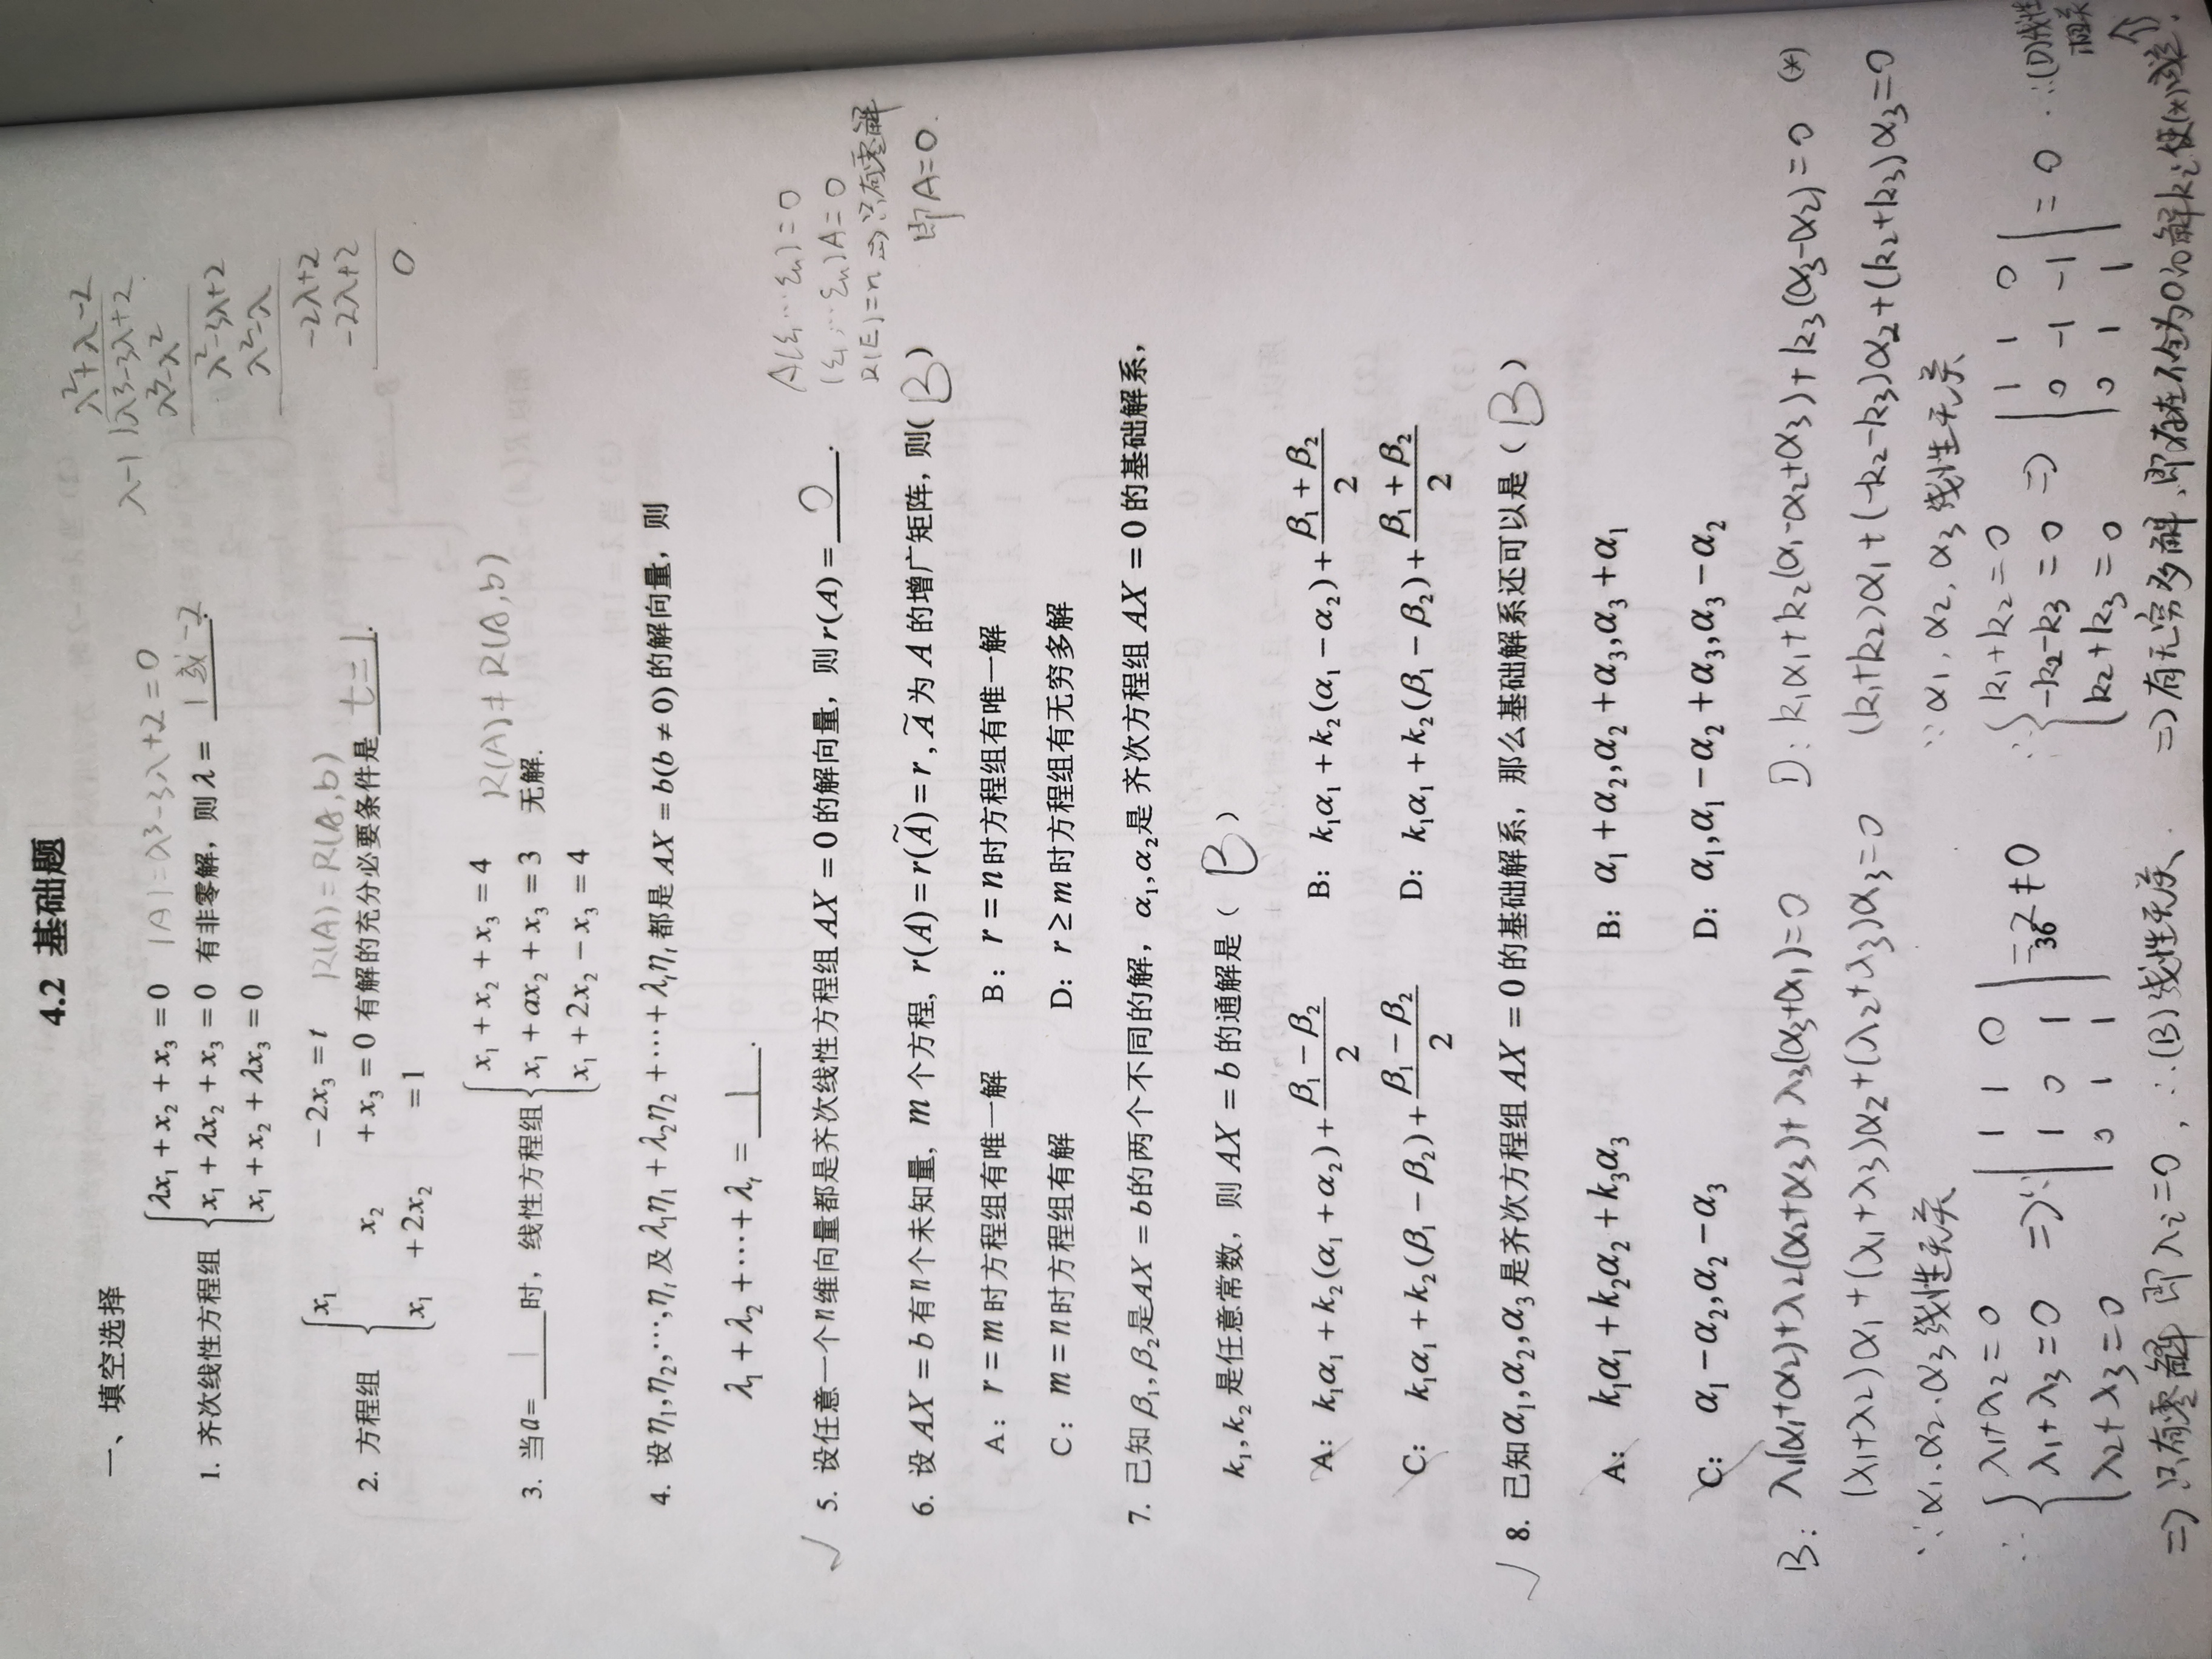 4.2 基础题
一、填空选择
λ²+λ-2
λ-1 λ³-3λ+2
λ³-λ²
λ²-3λ+2
λ²-λ
-2λ+2
-2λ+2
0
λx₁ + x₂ + x₃ = 0 |A|=λ³-3λ+2=0
1. 齐次线性方程组 x₁ + λx₂ + x₃ = 0 有非零解，则 λ = 1或-2.
x₁ + x₂ + λx₃ = 0
x₁ - 2x₃ = t R(A)=R(A,b)
2. 方程组 x₂ + x₃ = 0 有解的充分必要条件是 t=1.
x₁ + 2x₂ = 1
x₁ + x₂ + x₃ = 4 R(A)≠R(A,b)
3. 当a= 1 时，线性方程组 x₁ + ax₂ + x₃ = 3 无解.
x₁ + 2x₂ - x₃ = 4
4. 设η₁,η₂,⋯,ηₜ及λ₁η₁ + λ₂η₂ + ⋯ + λₜηₜ都是 AX = b(b ≠ 0)的解向量，则
λ₁ + λ₂ + ⋯ + λₜ = 1.
✓ 5. 设任意一个n维向量都是齐次线性方程组 AX = 0 的解向量，则 r(A) = 0.
A(ε₁…εₙ)=0
(ε₁…εₙ)A=0
R(E)=n ⇒只有零解
即A=0.
6. 设 AX = b 有n个未知量, m 个方程, r(A) = r(Ã) = r , Ã 为 A 的增广矩阵，则( B )
A： r = m 时方程组有唯一解 B： r = n 时方程组有唯一解
C： m = n时方程组有解 D： r ≥ m 时方程组有无穷多解
7. 已知 β₁, β₂是AX = b的两个不同的解，α₁,α₂是 齐次方程组 AX = 0 的基础解系，
k₁,k₂ 是任意常数，则 AX = b 的通解是（ B ）
A： k₁α₁ + k₂(α₁ + α₂) + (β₁ - β₂)/2 B： k₁α₁ + k₂(α₁ - α₂) + (β₁ + β₂)/2
C： k₁α₁ + k₂(β₁ - β₂) + (β₁ - β₂)/2 D： k₁α₁ + k₂(β₁ - β₂) + (β₁ + β₂)/2
✓ 8. 已知α₁,α₂,α₃ 是齐次方程组 AX = 0 的基础解系，那么基础解系还可以是（ B ）
A： k₁α₁ + k₂α₂ + k₃α₃ B： α₁ + α₂,α₂ + α₃,α₃ + α₁
C： α₁ - α₂,α₂ - α₃ D： α₁,α₁ - α₂ + α₃,α₃ - α₂
B: λ₁(α₁+α₂)+λ₂(α₂+α₃)+λ₃(α₃+α₁)=0
(λ₁+λ₂)α₁+(λ₁+λ₃)α₂+(λ₂+λ₃)α₃=0
∵α₁、α₂、α₃线性无关
∴ λ₁+λ₂=0 1 1 0
λ₁+λ₃=0 ⇒∵ 1 0 1 =-2≠0
λ₂+λ₃=0 0 1 1
⇒只有零解 即λi=0，∴(B)线性无关
D: k₁α₁+k₂(α₁-α₂+α₃)+k₃(α₃-α₂)=0 (*)
(k₁+k₂)α₁+(-k₂-k₃)α₂+(k₂+k₃)α₃=0
∵α₁, α₂, α₃线性无关
∴ k₁+k₂=0 1 1 0
-k₂-k₃=0 ⇒ 0 -1 -1 =0 ∴(D)线性相关
k₂+k₃=0 0 1 1
⇒有无穷多解，即存在不全为0的解ki使(*)成立
36